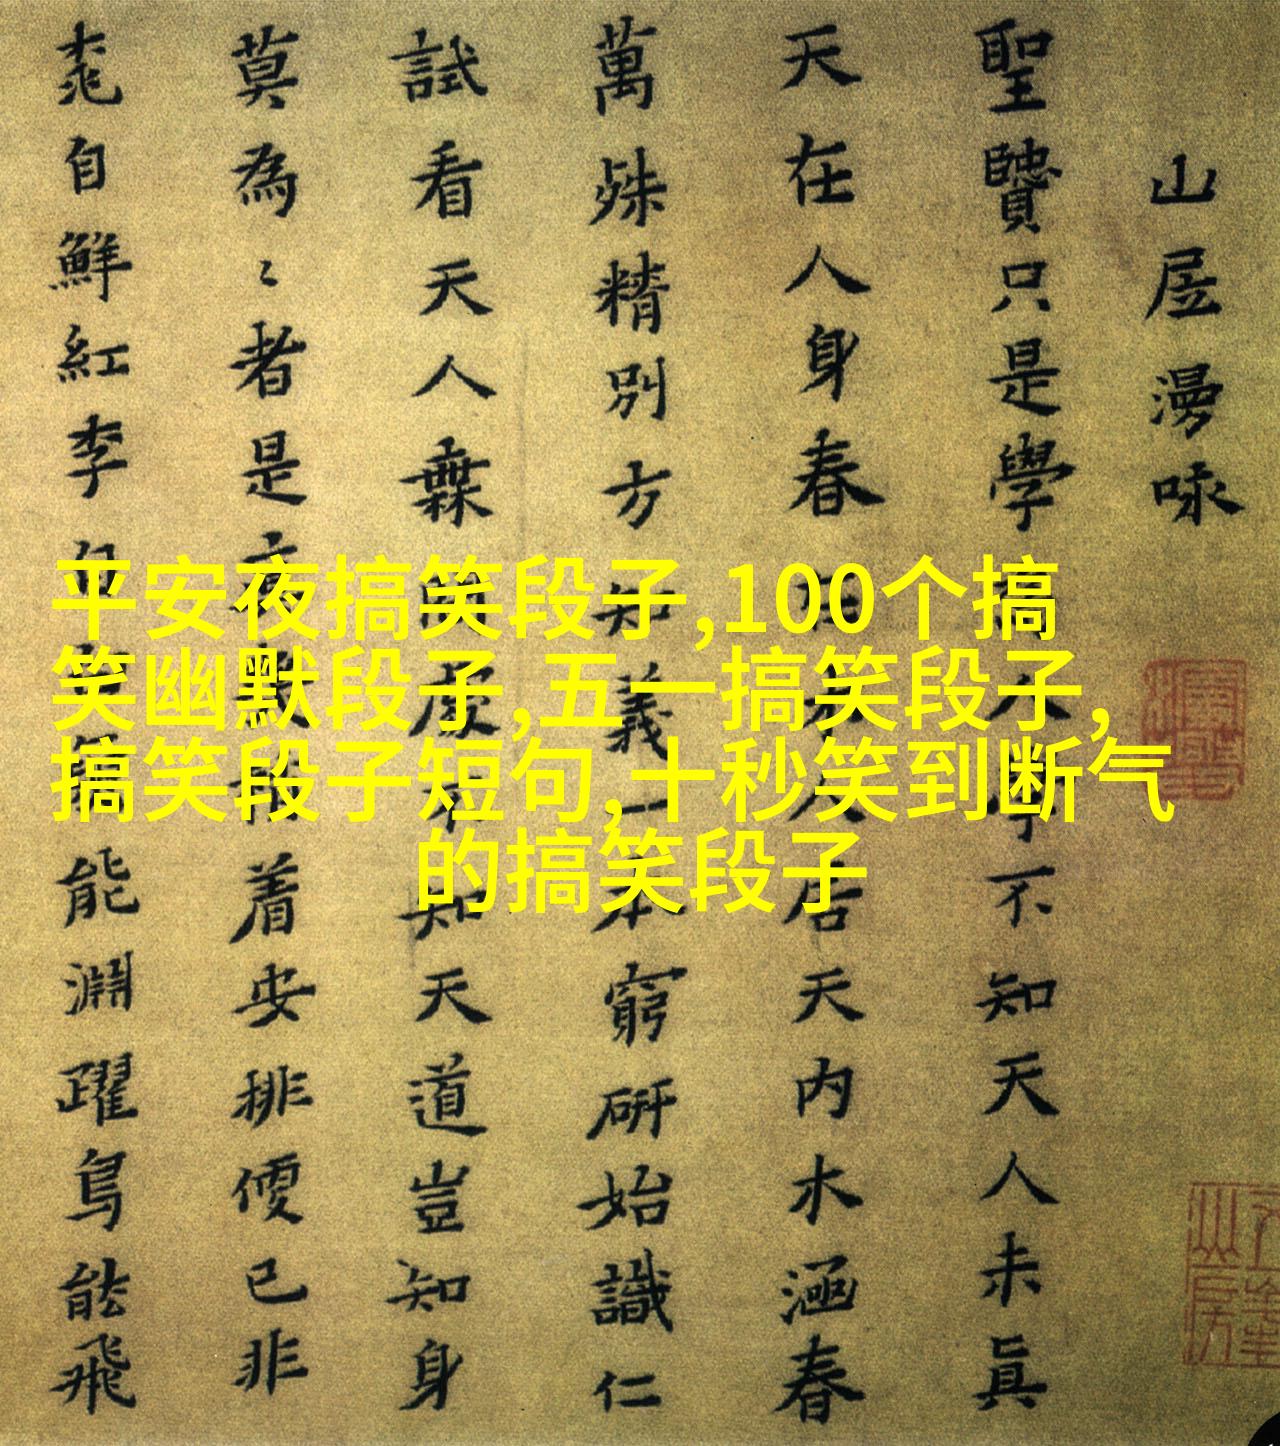 山居漫咏
聖贒只是學人學不知天人未真
天在人身春在人居天内木涵春
萬殊精別方知義一本窮研始識仁
試看天人無間處不知天道豈知身
莫為〻者是着安排便已非
桃自鮮紅李自能淵躍鳥能飛
平安夜搞笑段子,100个搞
笑幽默段子,五一搞笑段子,
搞笑段子短句,十秒笑到断气
的搞笑段子